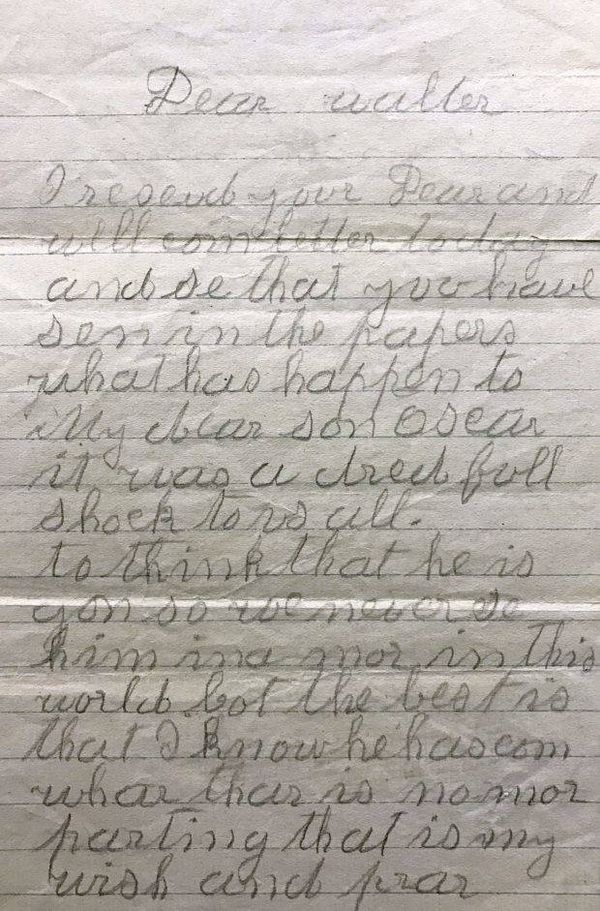 Dear waller
I reseved your Dear and
well com letter today
and se that you have
sen in the papers
what has happen to
My dear son Oscar
it was a dred full
shock to us all.
to think that he is
gon so we never se
him ina mor in this
world bot the best is
that I know he has com
whar thar is no mor
parting that is my
wish and prar